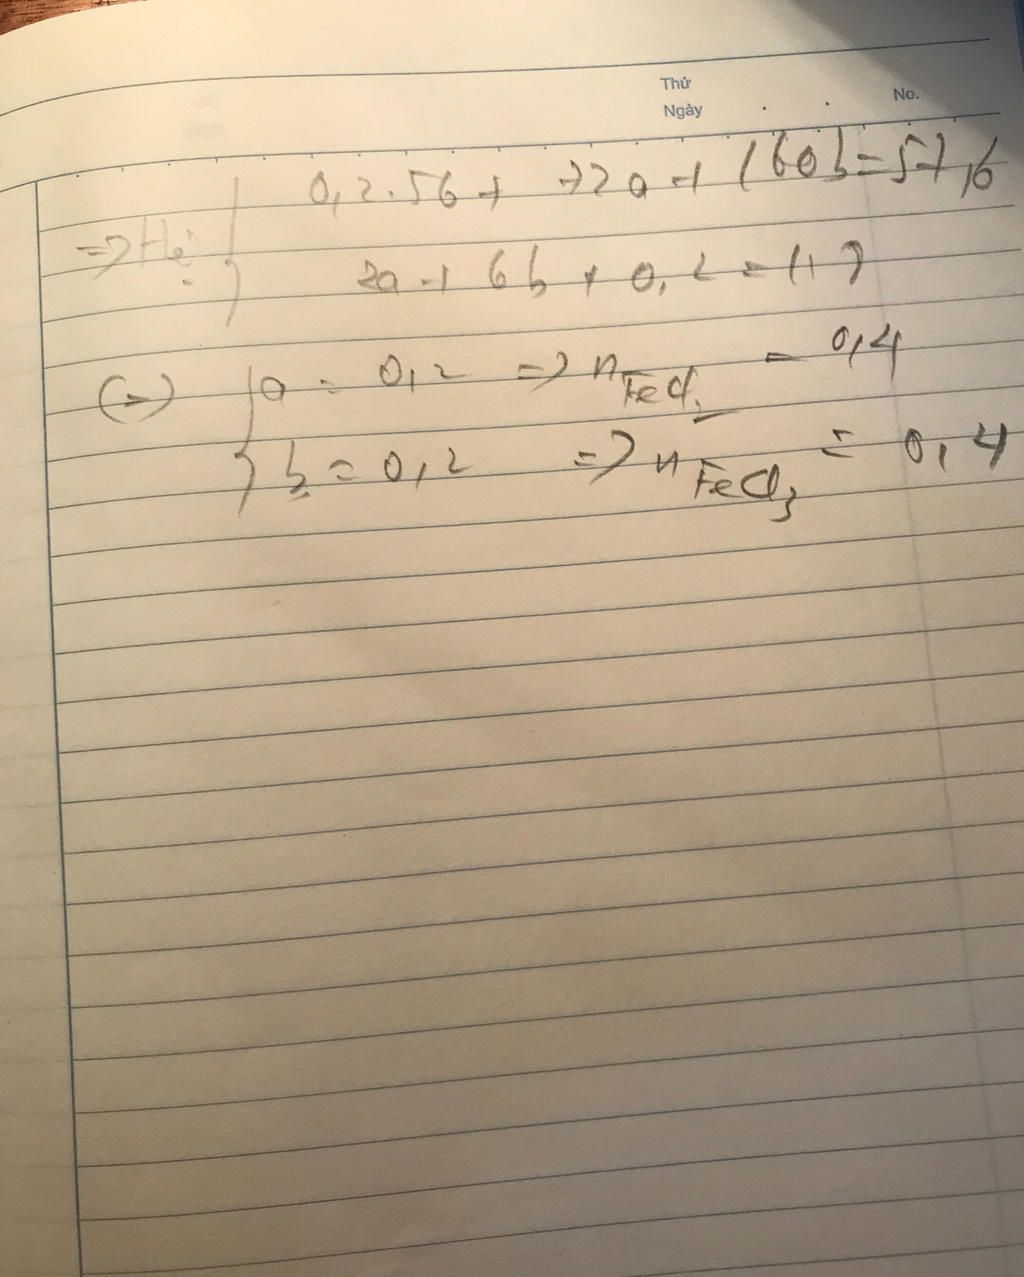 Thứ
Ngày
No.
=> Hệ { 0,2.56 + 72a + 160b = 57,6
2a + 6b + 0,2 = 1,8
(=) { a = 0,2 => n FeCl2 = 0,4
b = 0,2 => n FeCl3 = 0,4